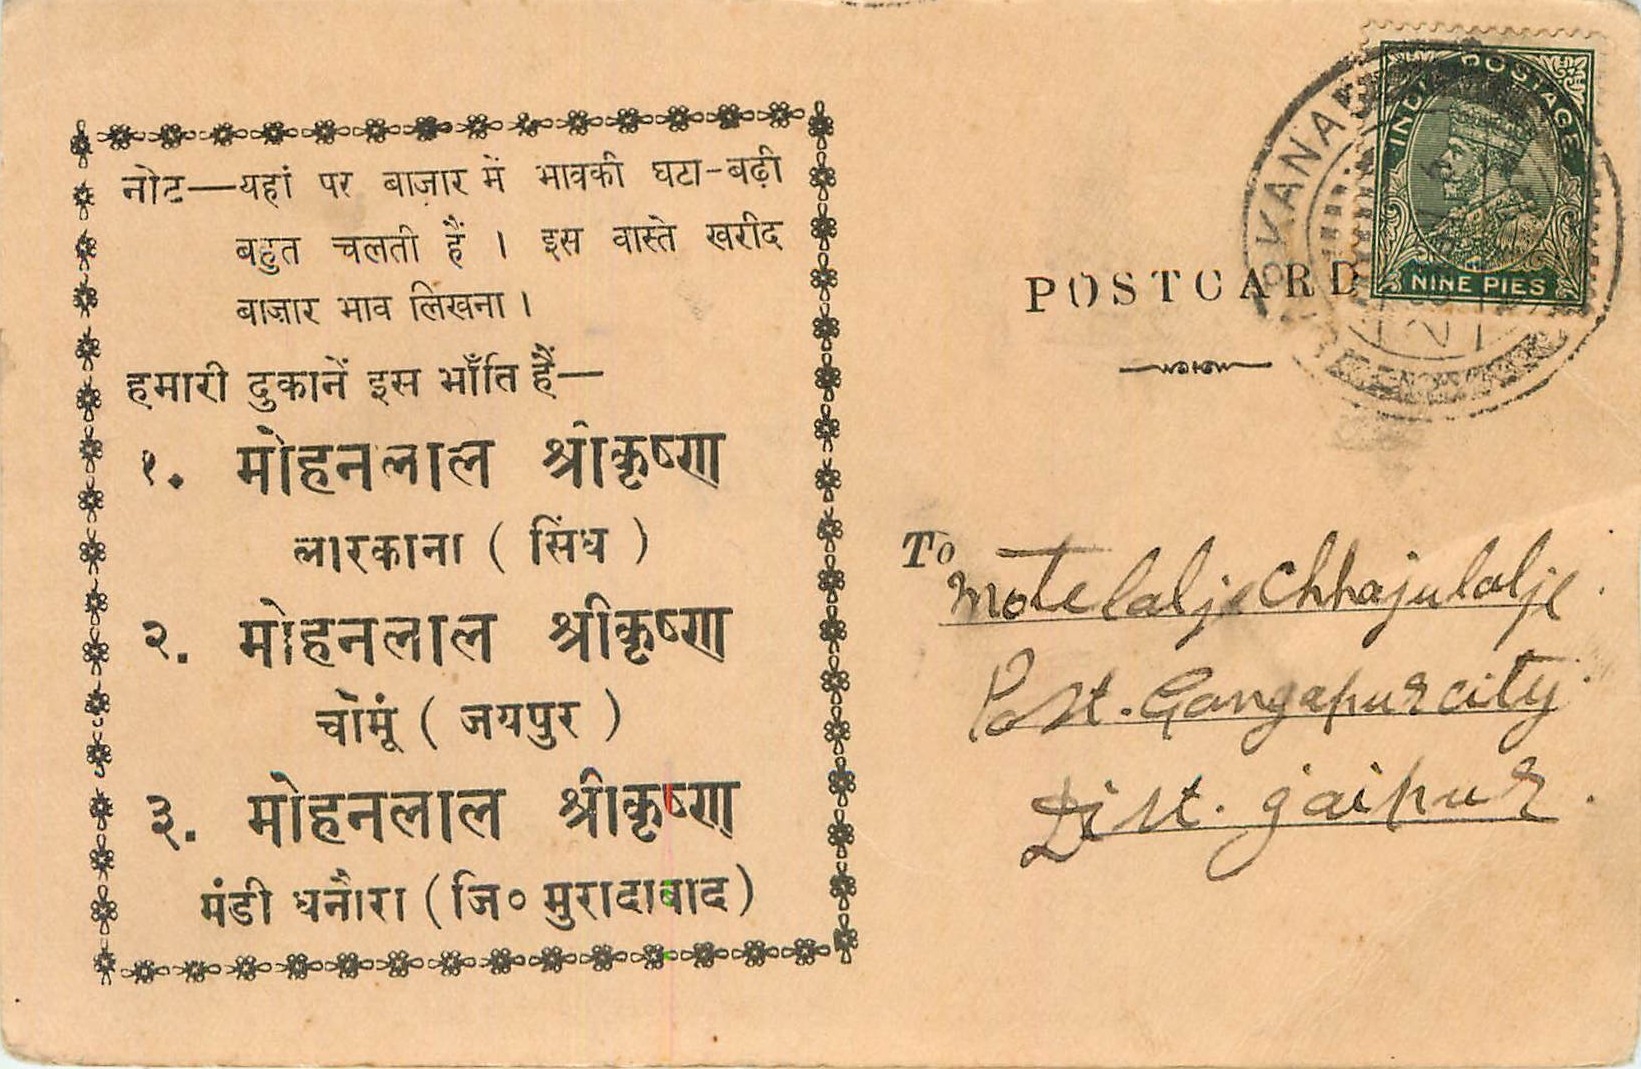 नोट—यहां पर बाज़ार में भावकी घटा-बढ़ी
बहुत चलती हैं । इस वास्ते खरीद
बाज़ार भाव लिखना ।
हमारी दुकानें इस भाँति हैं—
१. मोहनलाल श्रीकृष्ण
लारकाना ( सिंध )
२. मोहनलाल श्रीकृष्ण
चोमूं ( जयपुर )
३. मोहनलाल श्रीकृष्ण
मंडी धनौरा ( जि० मुरादाबाद )
INDIA POSTAGE
NINE PIES
POSTCARD
To
Motelalje Chhajulalje
Post. Gangapurcity
Dist. jaipur.